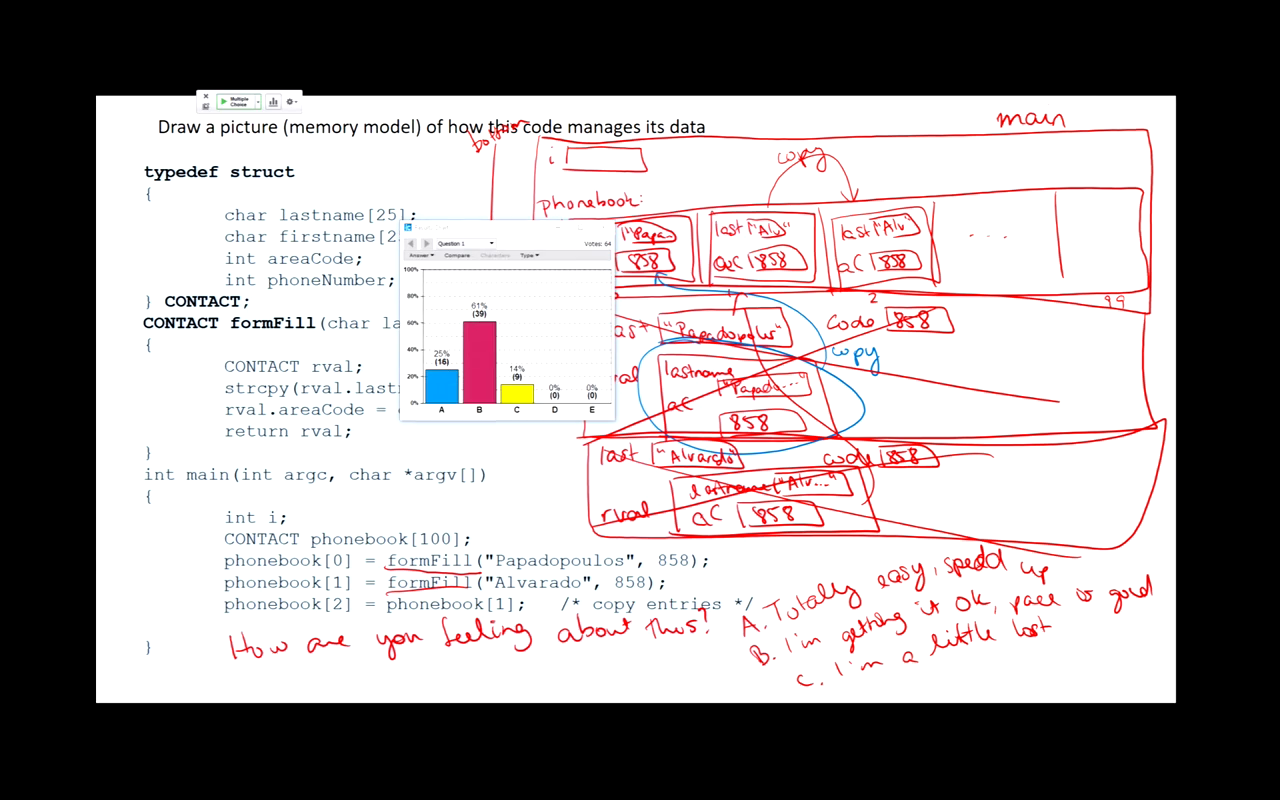 Multiple
Choice
Draw a picture (memory model) of how this code manages its data
bottom
main
i
copy
phonebook:
typedef struct
{
char lastname[25];
char firstname[2
int areaCode;
int phoneNumber;
} CONTACT;
CONTACT formFill(char la
{
CONTACT rval;
strcpy(rval.lastn
rval.areaCode =
return rval;
}
int main(int argc, char *argv[])
{
int i;
CONTACT phonebook[100];
phonebook[0] = formFill("Papadopoulos", 858);
phonebook[1] = formFill("Alvarado", 858);
phonebook[2] = phonebook[1]; /* copy entries */
}
Question 1
Votes: 64
Answer Compare Characters Type
100%
80%
60%
40%
20%
0%
25%
(16)
61%
(39)
14%
(9)
0%
(0)
0%
(0)
A B C D E
"Papa
858
last "Alv"
aC 858
last "Alv"
aC 858
....
2
99
"Papadopolus"
code 858
copy
lastname
"Papado...."
aC
858
last "Alvarado"
code 858
lastname "Alv..."
rval
aC 858
How are you feeling about this?
A. Totally easy, speed up
B. I'm getting it OK, pace is good
C. I'm a little lost